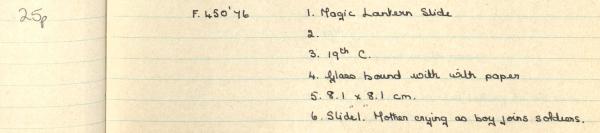 25p
F. 450'76
1. Magic Lantern Slide
2.
3. 19th C.
4. Glass bound with with paper
5. 8.1 x 8.1 cm.
6. Slide "1". Mother crying as boy joins soldiers.